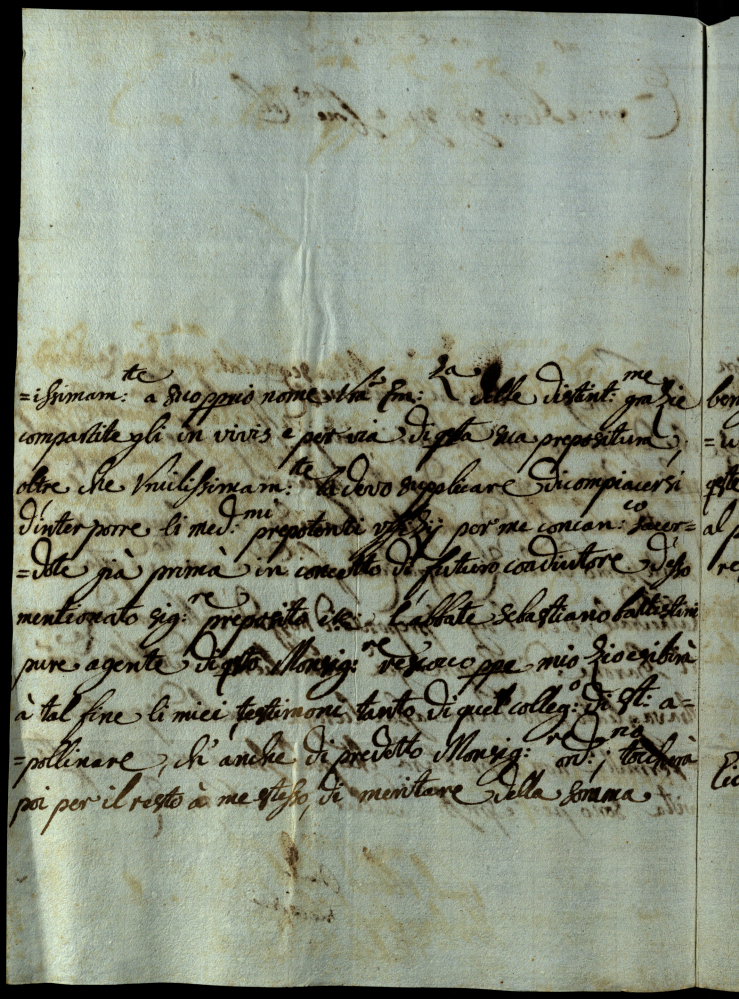 =issimam:te a suo pprio nome Vra Em:za delle distint:me grazie
compartite gli in vivis e per via di qsta sua prepositura;
oltre che Vmilissimam:te La devo supplicare di compiacersi
d'interporre li med:mi prepotenti vffizij por me concan:co sacer=
=dote già primà in concetto di futuro coadiutore d'esso
mentionato sig:re preposito etc: L'abbate Sebastiano battistini
pure agente di qsto Monsig:re vescovo ppe mio Zio esibirà
à tal fine li miei testimoni tanto di quel colleg:o di St: a=
=pollinare, ch' anche di predotto Monsig:re ord:rio; toccherà
poi per il resto à me stesso, di meritare della somma